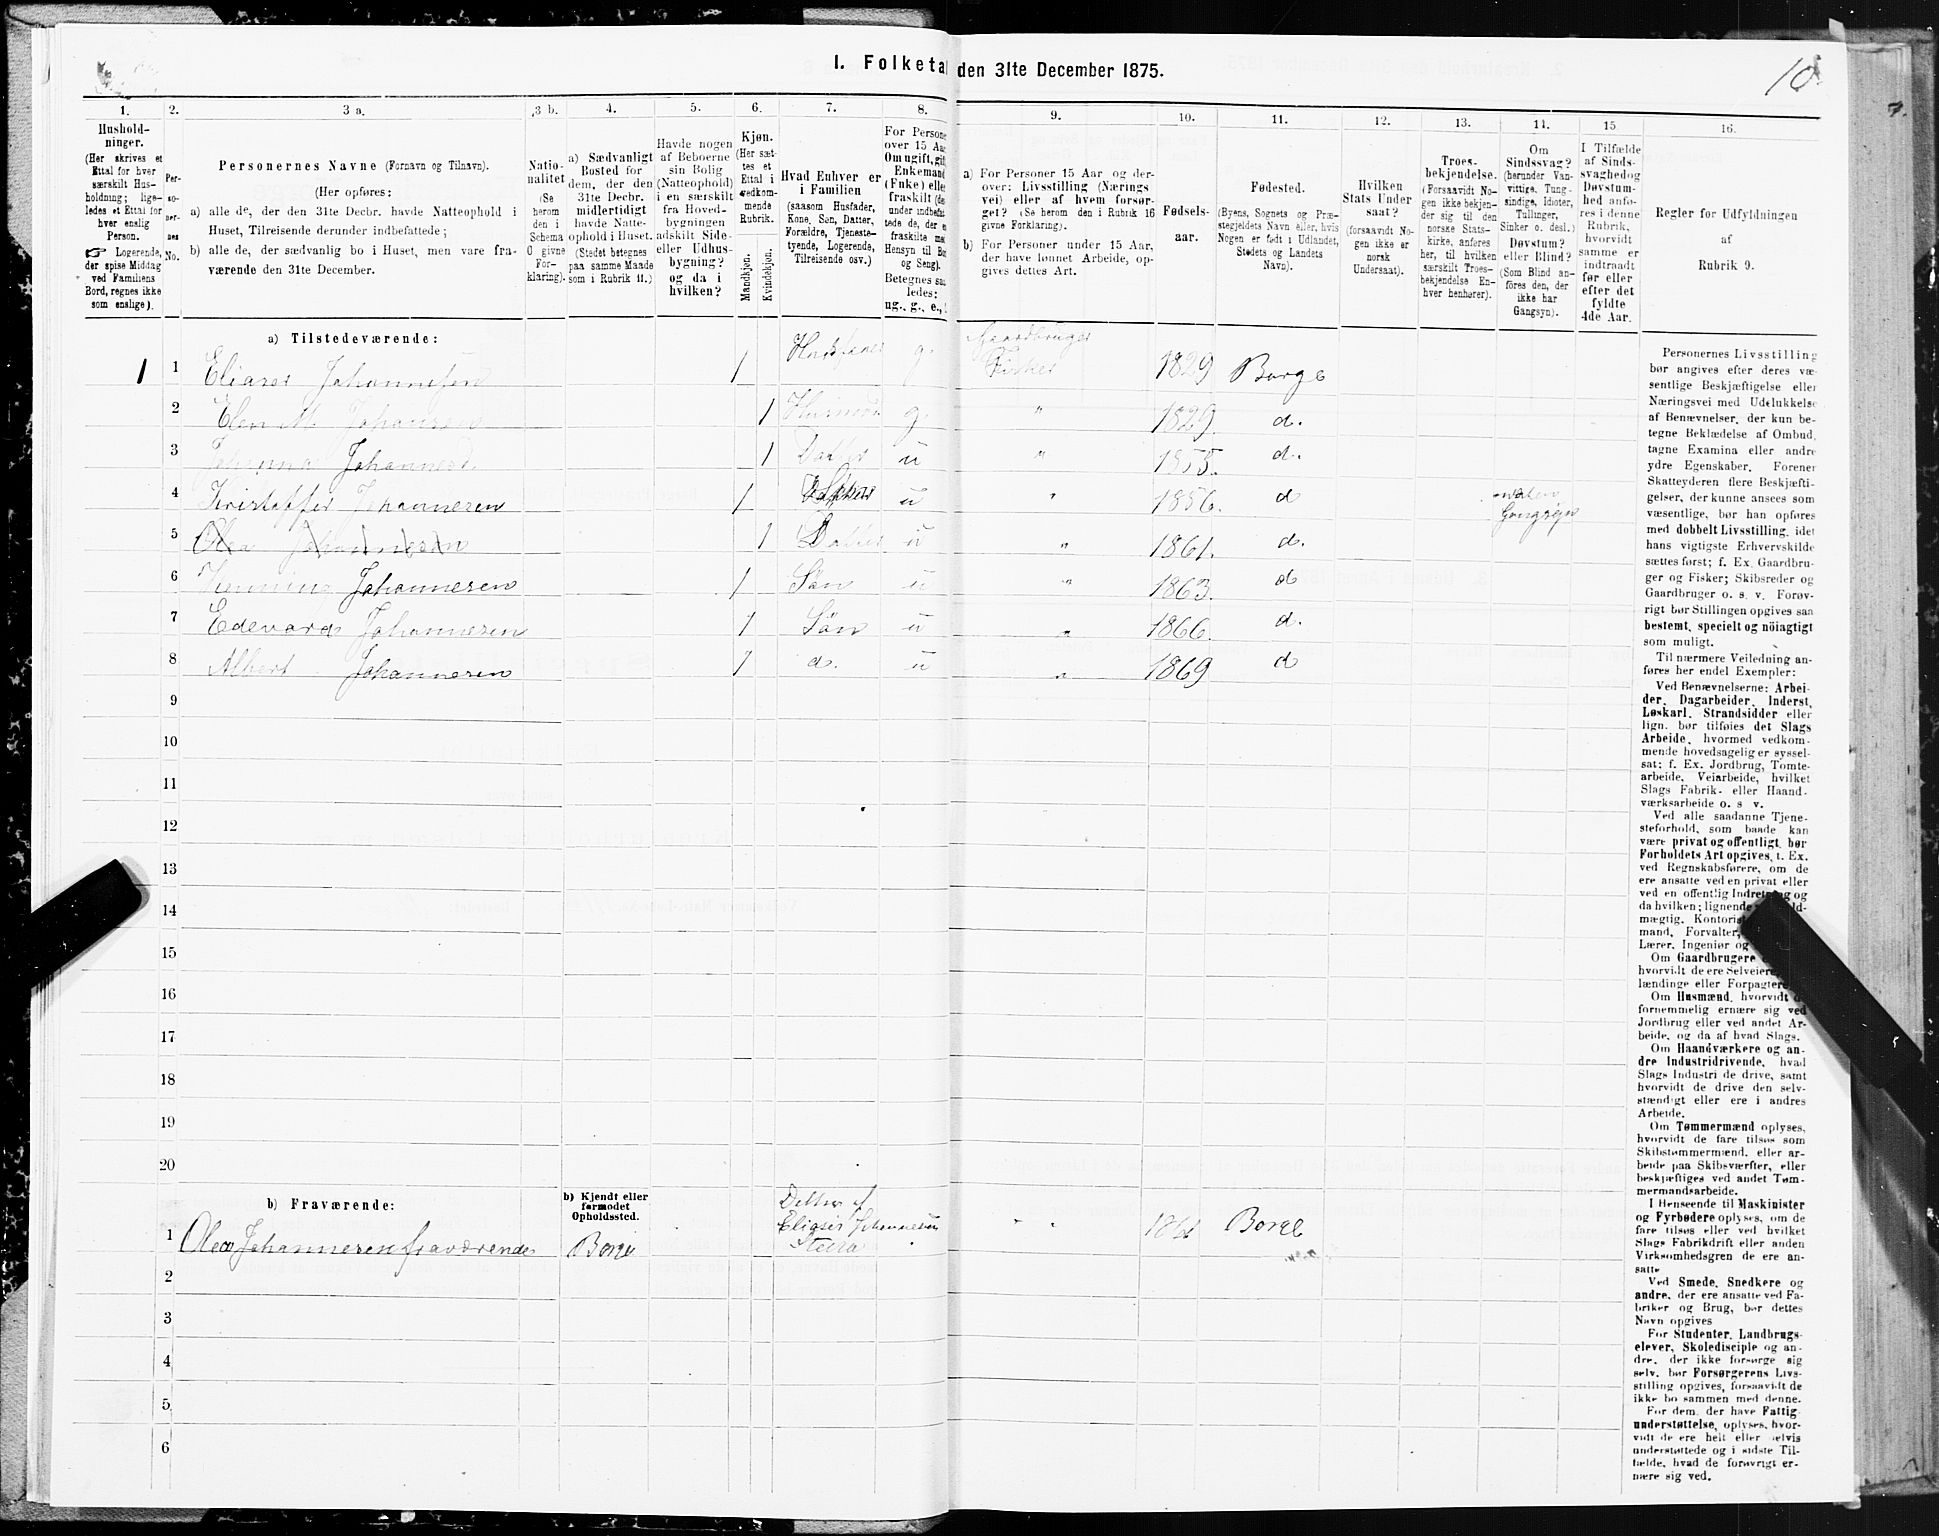 I. Folketa den 31te December 1875.
10
1.
Hushold-
ninger.
(Her skrives et
Ettal for hver
særskilt Hus-
holdning; lige-
ledes et Ettal for
hver enslig
Person.
Logerende,
der spise Middag
ved Familiens
Bord, regnes ikke
som enslige).
2.
Per-
so-
ner-
nes
No.
3 a.
Personernes Navne (Fornavn og Tilnavn).
(Her opføres:
a) alle de, der den 31te Decbr. havde Natteophold i
Huset, Tilreisende derunder indbefattede;
b) alle de, der sædvanlig bo i Huset, men vare fra-
værende den 31te December.
3 b.
Natio-
nalitet
(Se
herom
den i
Schema
O givne
For-
klaring).
4.
a) Sædvanligt
Bosted for
dem, der den
31te Decbr.
midlertidigt
havde Natte-
ophold i Huset.
(Stedet betegnes
paa samme Maade
som i Rubrik 11.)
5.
Havde nogen
af Beboerne
sin Bolig
(Natteophold)
i en særskilt
fra Hoved-
bygningen
adskilt Side-
eller Udhus-
bygning?
og da i
hvilken?
6.
Kjøn.
(Her sæt-
tes et
Ettal i
vedkom-
mende
Rubrik.
Mandkjøn.
Kvindekjøn.
7.
Hvad Enhver er
i Familien
(saasom Husfader,
Kone, Søn, Datter,
Forældre, Tjeneste-
tyende, Logerende,
Tilreisende osv.)
8.
For Persone
over 15 Aar
Om ugift, gift
Enkemand
(Enke) elle
fraskilt (de
under indbefat
tede de, der e
fraskilte med
Hensyn til Bo
og Seng).
Betegnes saa
ledes:
ug., g., e.,
9.
a) For Personer 15 Aar og der-
over: Livsstilling (Nærings
vei) eller af hvem forsør-
get? (Se herom den i Rubrik 16
givne Forklaring).
b) For Personer under 15 Aar,
der have lønnet Arbeide, op-
gives dettes Art.
10.
Fødsels-
aar.
11.
Fødested.
(Byens, Sognets og Præ-
stegjeldets Navn eller, hvis
Nogen er født i Udlandet,
Stedets og Landets
Navn).
12.
Hvilken
Stats Under
saat?
(forsaavidt No-
gen ikke er
norsk
Undersaat).
13.
Troes-
bekjendelse.
(Forsaavidt No-
gen ikke bekjen-
der sig til den
norske Stats-
kirke, anføres
her, til hvilken
særskilt Troes-
bekjendelse En-
hver henhører).
14.
Om
Sindssvag?
(herunder Van-
vittige, Tung-
sindige, Idioter,
Tullinger,
Sinker o. desl.)
Døvstum?
eller Blind?
(Som Blind an-
føres den, der
ikke har
Gangsyn).
15
I Tilfælde
af Sinds-
svaghed og
Døvstum-
hed anfø-
res i denne
Rubrik,
hvorvidt
samme er
indtraadt
før eller
efter det
fyldte
4de Aar.
16.
Regler for Udfyldningen
af
Rubrik 9.
a) Tilstedeværende:
1 1 Eliaser Johannesen 1 Husfader g. Gaardbruger Fisker 1829 Borge
2 Elen M. Johansen 1 Husmor g. " 1829. d.
3 Johanna Johannesd 1 Datter u " 1855. d.
4 Kristoffer Johannesen 1 u " 1856. d uden Gangsyn
5 Olea Johannesen 1 Datter u " 1861. d.
6 Henning Johannesen 1 Søn u " 1863. d
7 Edevard Johannesen 1 Søn u " 1866. d.
8 Albert Johannesen 1 d. u " 1869 d
9
10
11
12
13
14
15
16
17
18
19
20
b) Fraværende:
b) Kjendt eller
formodet
Opholdssted.
1 Olea Johannesen fraværende Borge Datter af Eliaser Johannesen Steira " " 1861 Borge
2
3
4
5
6
Personernes Livsstilling
bør angives efter deres væ-
sentlige Beskjæftigelse eller
Næringsvei med Udelukkelse
af Benævnelser, der kun be-
tegne Beklædelse af Ombud,
tagne Examina eller andre
ydre Egenskaber. Forener
Skatteyderen flere Beskjæfti-
gelser, der kunne ansees som
væsentlige, bør han opføres
med dobbelt Livsstilling, idet
hans vigtigste Erhvervskilde
sættes først; f. Ex. Gaardbru-
ger og Fisker; Skibsreder og
Gaardbruger o. s. v. Forøv-
rigt bør Stillingen opgives saa
bestemt, specielt og nöiagtigt
som muligt.
Til nærmere Veiledning an-
føres her endel Exempler:
Ved Benævnelserne: Arbei-
der, Dagarbeider, Inderst,
Løskarl, Strandsidder eller
lign. bør tilføies det Slags
Arbeide, hvormed vedkom-
mende hovedsagelig er syssel-
sat; f. Ex. Jordbrug, Tomte-
arbeide, Veiarbeide, hvilket
Slags Fabrik- eller Haand-
værksarbeide o. s v.
Ved alle saadanne Tjene-
steforhold, som baade kan
være privat og offentligt, bør
Forholdets Art opgives, t. Ex.
ved Regnskabsførere, om de
ere ansatte ved en privat eller
ved en offentlig Indretning og
da hvilken; lignende
mægtig, Kontorist
mand, Forvalter,
Lærer, Ingeniør og
Om Gaardbrugere
hvorvidt de ere Selveiere,
lændinge eller Forpagtere.
Om Husmænd, hvorvidt d
fornemmelig ernære sig ved
Jordbrug eller ved andet Ar-
beide, og da af hvad Slags.
Om Haandværkere og an-
dre Industridrivende, hvad
Slags Industri de drive, samt
hvorvidt de drive den selv-
stændigt eller ere i andres
Arbeide.
Om Tømmermænd oplyses,
hvorvidt de fare tilsøs som
Skibstømmermænd, eller ar-
beide paa Skibsværfter, eller
beskjæftiges ved andet Tøm-
mermandsarbeide.
I Henseende til Maskinister
og Fyrbødere oplyses, om de
fare tilsøs eller ved hvilket
Slags Fabrikdrift eller anden
Virksomhedsgren de ere an-
satte
Ved Smede, Snedkere og
andre, der ere ansatte ved Fa-
briker og Brug, bør dettes
Navn opgives
For Studenter, Landbrugs-
elever, Skoledisciple og an-
dre, der ikke forsørge sig
selv, bør Forsørgerens Livs-
stilling opgives, forsaavidt de
ikke bo sammen med denne.
For dem, der have Fattig-
understøttelse, oplyses, hvor-
vidt de ere helt eller delvis
understøttede og i sidste Til-
fælde, hvad de forøvrigt er-
nære sig ved.